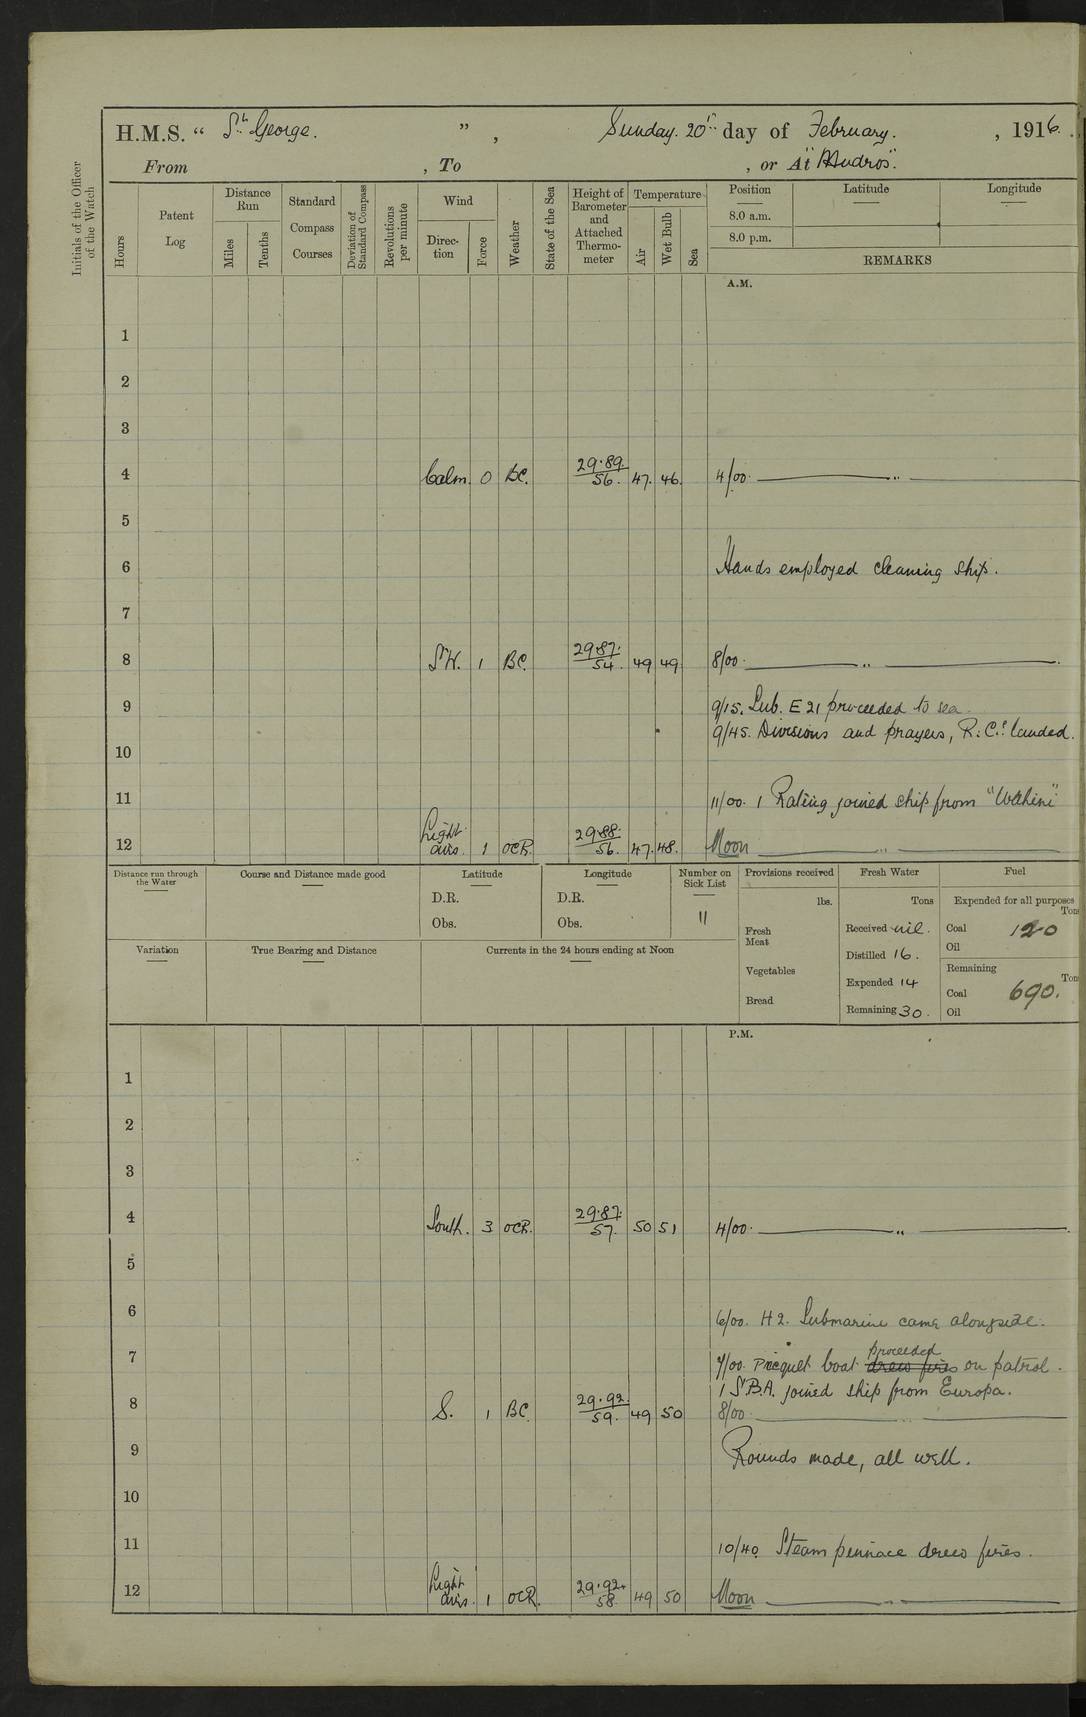 H.M.S. “ St. George. ” , Sunday. 20th day of February. , 1916.
From , To , or At "Mudros".
Initials of the Officer of the Watch
Hours
Patent Log
Distance Run
Miles
Tenths
Standard Compass Courses
Deviation of Standard Compass
Revolutions per minute
Wind
Direction
Force
Weather
State of the Sea
Height of Barometer and Attached Thermometer
Temperature
Air
Wet Bulb
Sea
Position
Latitude
Longitude
8.0 a.m.
8.0 p.m.
REMARKS
A.M.
1
2
3
4 Calm. 0 BC. 29.89. 56. 47. 46. 4/00. "
5
6 Hands employed cleaning ship.
7
8 SW. 1 BC. 29.87. 54. 49 49 8/00. "
9 9/15. Sub. E 21 proceeded to sea.
9/45. Divisions and prayers, R.C.s landed.
10
11 11/00. 1 Rating joined ship from "Wahine"
12 Light airs. 1 OCR. 29.88. 56. 47. 48. Noon "
Distance run through the Water
Course and Distance made good
Latitude
D.R.
Obs.
Longitude
D.R.
Obs.
Number on Sick List
11
Provisions received
lbs.
Fresh Meat
Vegetables
Bread
Fresh Water
Tons
Received nil.
Distilled 16.
Expended 14
Remaining 30.
Fuel
Expended for all purposes
Tons
Coal 120
Oil
Remaining
Tons
Coal 690.
Oil
Variation
True Bearing and Distance
Currents in the 24 hours ending at Noon
P.M.
1
2
3
4 South. 3 OCR. 29.87. 57. 50 51 4/00. "
5
6 6/00. H 2. Submarine came alongside.
7 7/00. Picquet boat drew fires proceeded on patrol.
1 S.B.A. joined ship from Europa.
8 S. 1 BC. 29.92. 59. 49 50 8/00. "
9 Rounds made, all well.
10
11 10/40 Steam pinnace drew fires.
12 Light airs. 1 OCR. 29.92. 58. 49 50 Noon "